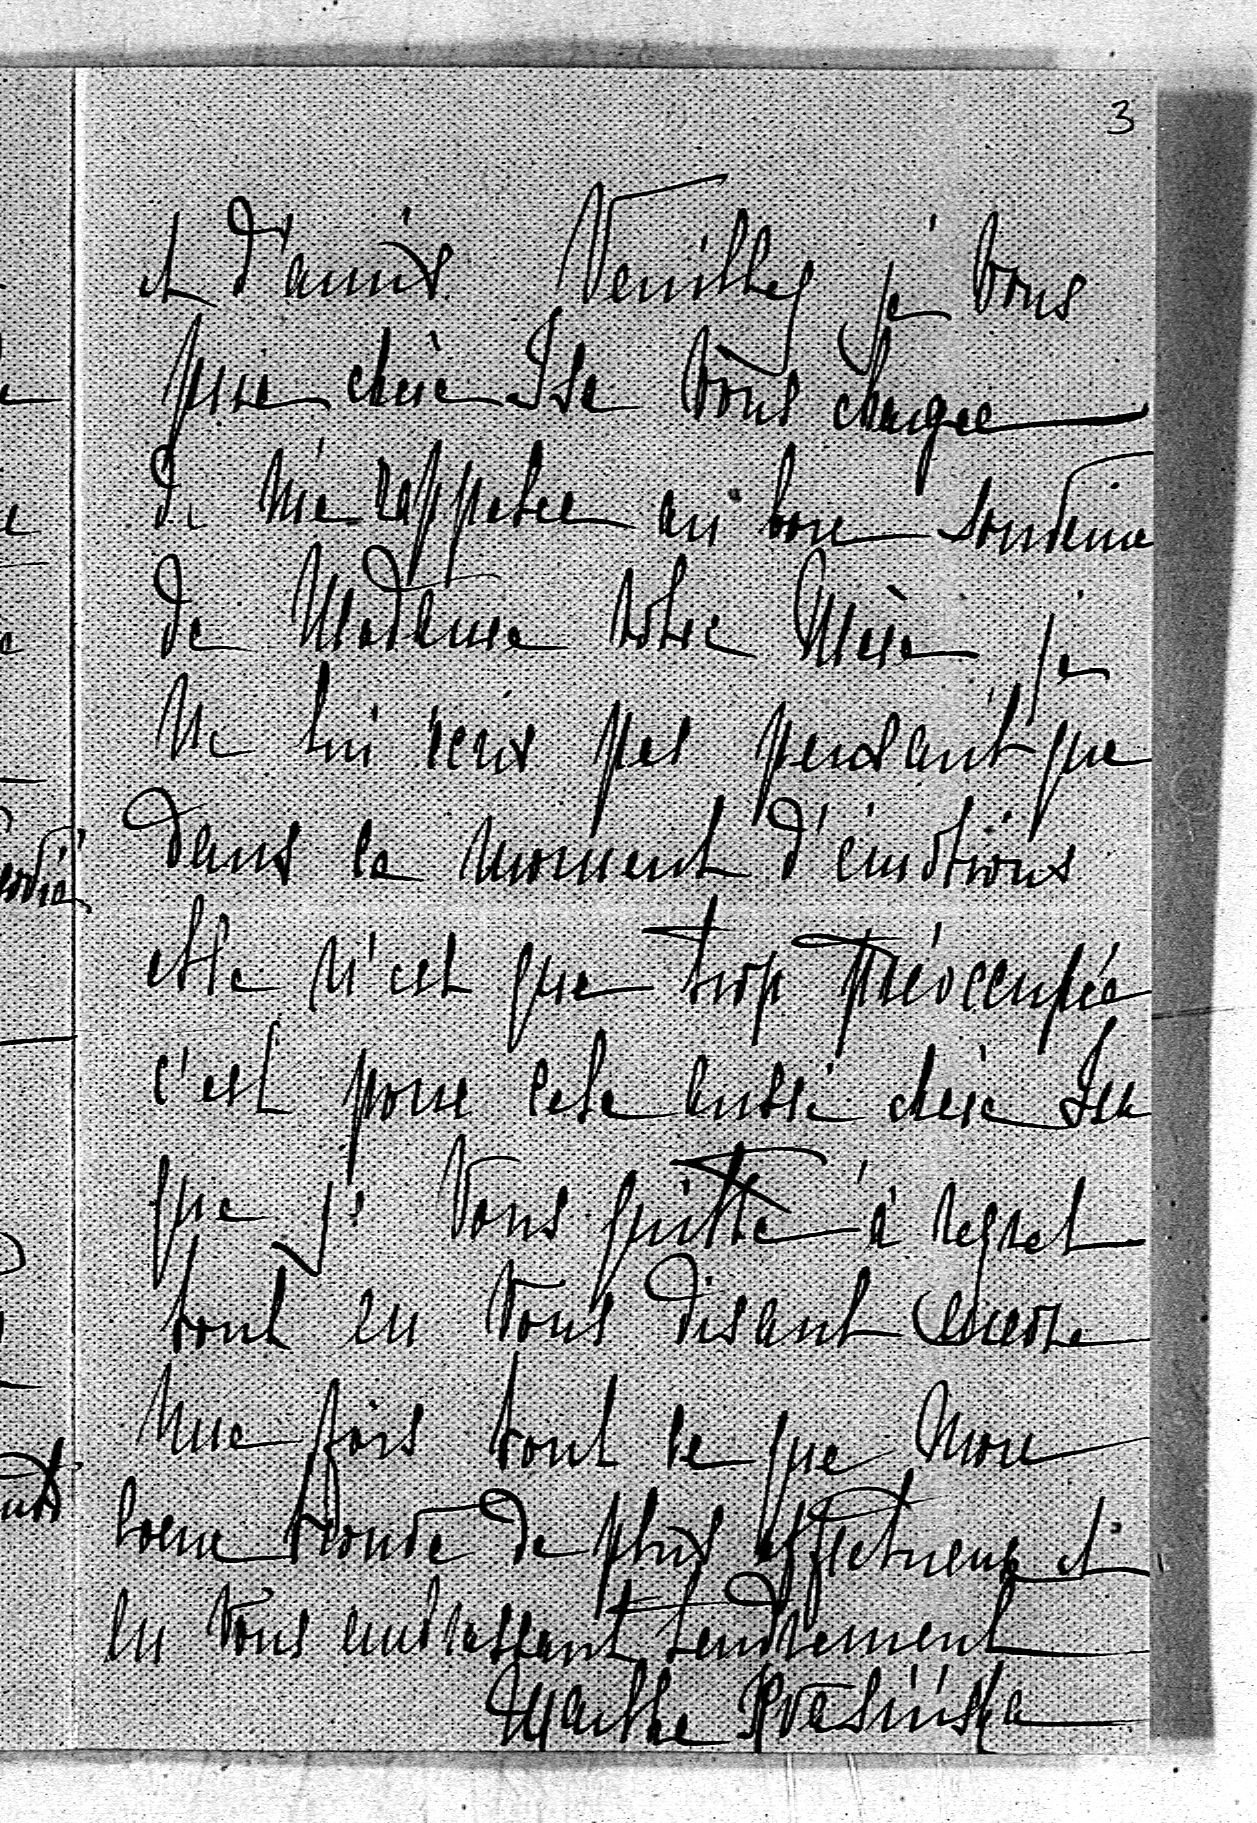 3
et d'amis. Veuillez je vous
prie chère Ise vous charger
de me rappeler au bon souvenir
de Madame votre Mère je
ne lui écris pas pensant que
dans ce moment d'émotions
elle n'est que trop préoccupée
c'est pour cela aussi chère Ise
que je vous quitte à regret
tout en vous disant encore
une fois tout ce que mon
coeur trouve de plus affectueux et
en vous embrassant tendrement
Marthe Krasińska